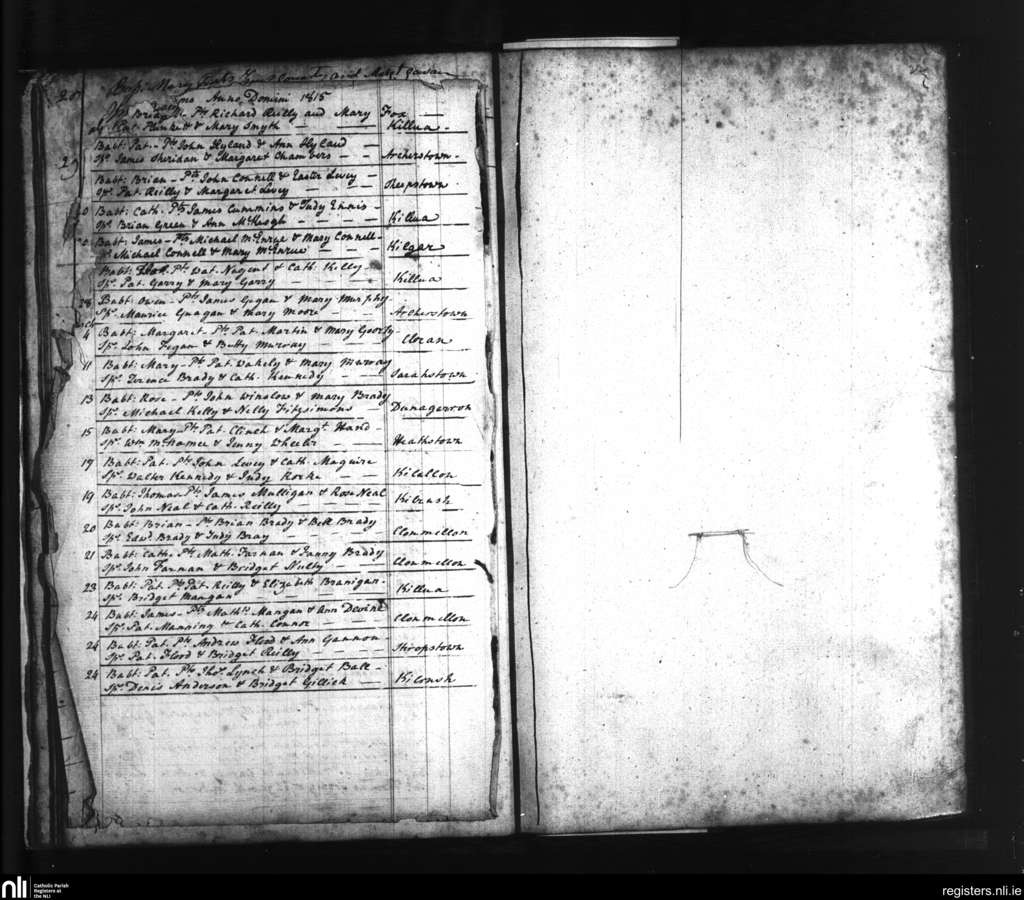 Bapt: Mary
Anno Domini 1815
Bridget Pts Richard Reilly and Mary Fox
Plunket & Mary Smyth — Killua
Babt: Pat - Pts John Hyland & Ann Hyland —
Sps James Sheridan & Margaret Chambers — Archerstown
Babt: Brian - Pts John Connell & Easter Levey —
Sps Pat Reilly & Margaret Levey —
Babt: Cath. Pts James Cummins & Judy Ennis -
Sps Brian Green & Ann McKeogh — Killua
Babt: James - Pts Michael McEnrue & Mary Connell -
Sps Michael Connell & Mary McEnrue — Kilgar
Babt: Pts Wat. Nugent & Cath. Kelly -
Sps Pat Garry & Mary Garry — Killua
28 Babt: Owen - Pts James Gegan & Mary Murphy
Sps Maurice Gnagan & Mary Moore — Archerstown
4 Babt: Margaret Pts Pat. Martin & Mary Georty
Sps John Fegan & Betty Murray — Cloran
11 Babt: Mary - Pts Pat Wakely & Mary Murray
Sps Terence Brady & Cath. Kennedy — Sarahstown
13 Babt: Rose - Pts John Winslow & Mary Brady
Sps Michael Kelly & Nelly Fitzsimons —
15 Babt: Mary - Pts Pat. Clinch & Margt. Hand -
Sps Wm McNamee & Jenny Wheeler — Heathstown
17 Babt: Pat. Pts John Levey & Cath. Maguire
Sps Walter Kennedy & Judy Rorke — Kilallon
19 Babt: Thomas Pts James Mulligan & Rose Neal
Sps John Neal & Cath. Reilly — Kilrush
20 Babt: Brian - Pts Brian Brady & Bett Brady
Sps Edwd. Brady & Judy Bray — Clonmellon
21 Babt: Cath. Pts Math. Farnan & Fanny Braddy
Sps John Farnan & Bridget Nulty — Clonmellon
23 Babt: Pat. Pts Pat. Reilly & Elizabeth Branigan -
Sps Bridget Mangan — Killua
24 Babt: James - Pts Mathw Mangan & Ann Devine
Sps Pat. Manning & Cath. Connor — Clonmellon
24 Babt: Pat. Pts Andrew Flood & Ann Gannon
Sps Pat. Flood & Bridget Reilly — Shropstown
24 Babt: Pat. Pts Thos. Lynch & Bridget Ball -
Sps Denis Anderson & Bridget Gillick —
nli Catholic Parish
Registers at
the NLI
registers.nli.ie